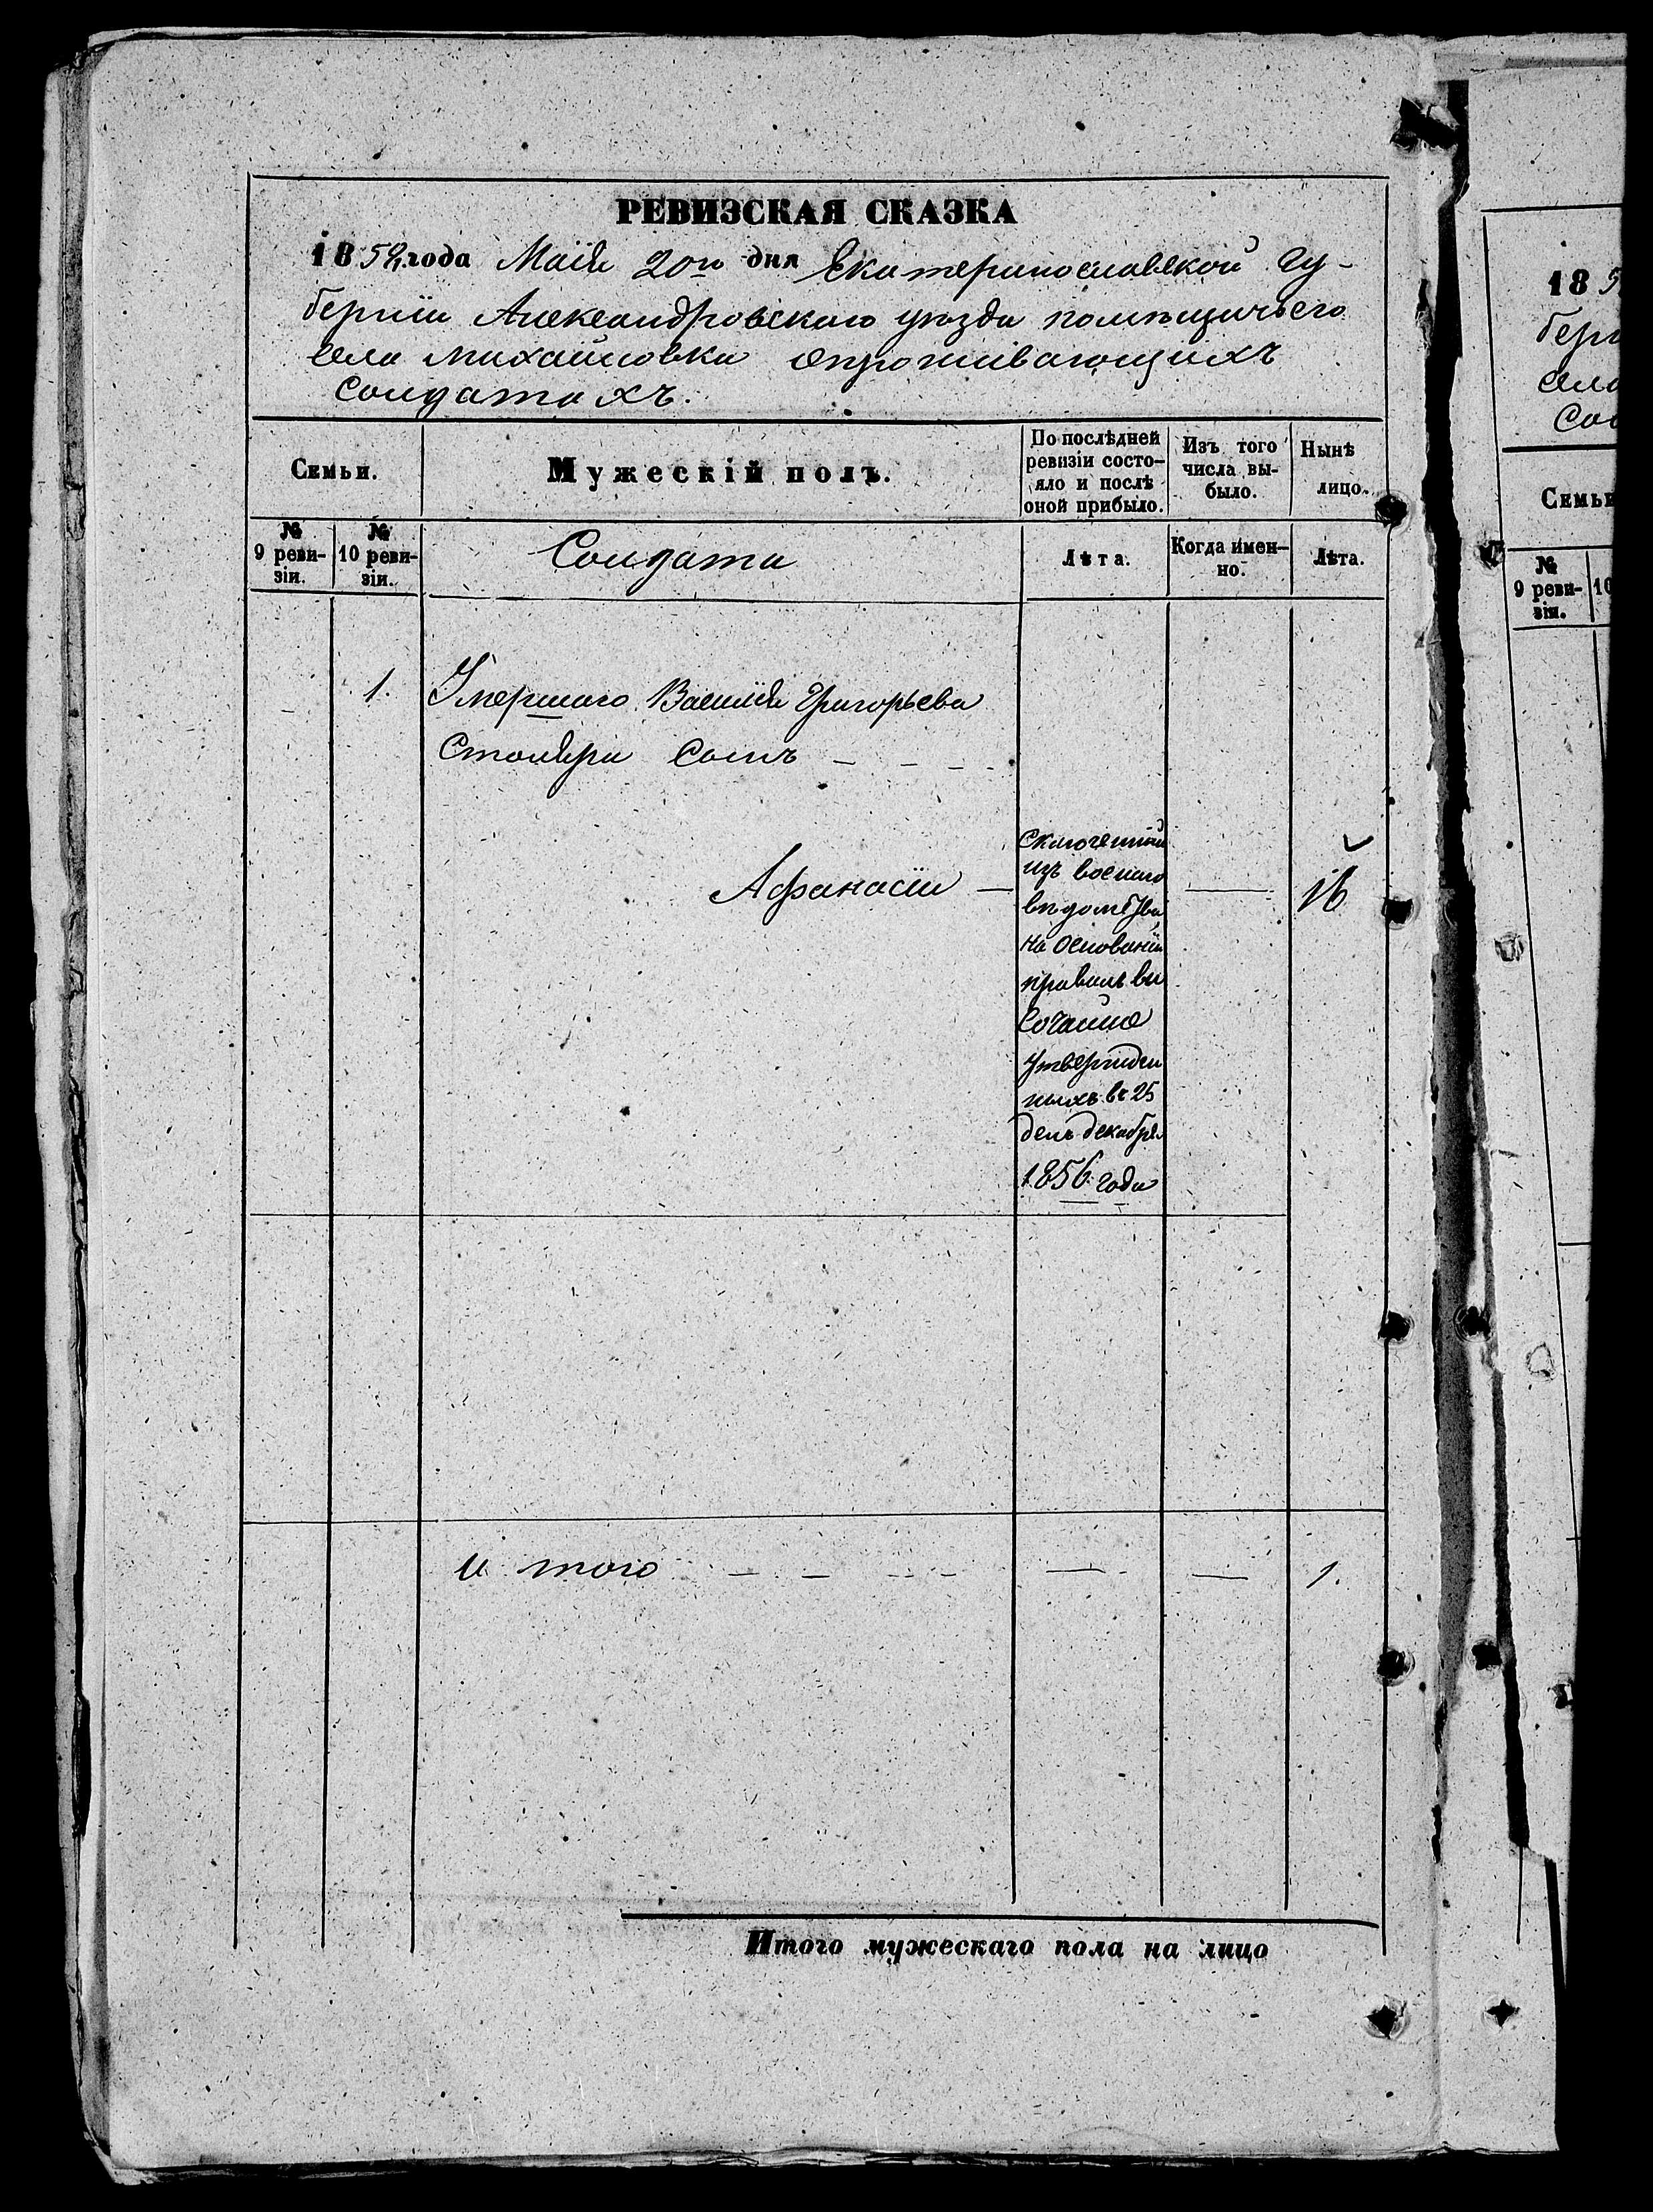 РЕВИЗСКАЯ СКАЗКА
1858 года Маія 20го дня Екатеринославской Гу-
берніи Александровскаго уѣзда помѣщичьего
села Михайловки опроживающихъ
Солдатахъ.
Семьи.
Мужескій полъ.
По послѣдней ревизіи состо-
яло и послѣ оной прибыло.
Изъ того числа вы-
было.
Нынѣ лицо.
№ 9 реви-
зіи.
№ 10 реви-
зіи.
Солдата
Лѣта.
Когда имен-
но.
Лѣта.
1.
Умершаго Василія Григорьева
Столяра Сынъ
Афанасіи
Сключенный
изъ военаго
вѣдомства
на основаніи
правилъ вы
сочайше
утвержден
ныхъ въ 25
день декабря
1856 года
16
И того
1.
Итого мужескаго пола на лицо
18 5
берн
села
Сол
Семьи
№ 9 реви-
зіи.
10